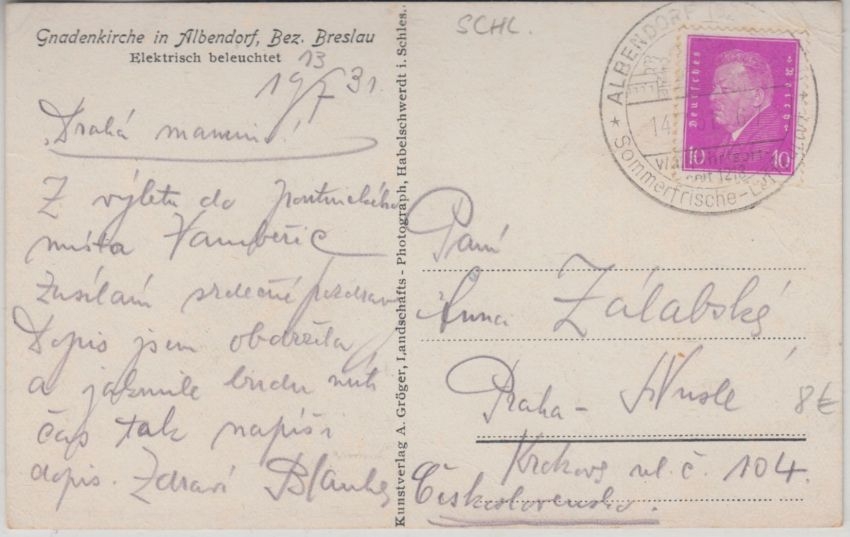 Gnadenkirche in Albendorf, Bez. Breslau
Elektrisch beleuchtet
19 13/7 31.
Drahá maminko!
Z výletu do poutnického
místa Vambeřic
zasílám srdečné pozdravy
Dopis jsem obdržela
a jakmile budu míti
čas tak napíši
dopis. Zdraví
Kunstverlag A. Gröger, Landschafts - Photograph, Habelschwerdt i. Schles.
SCHL.
ALBENDORF
14
seit 1218
Sommerfrische
Deutsches Reich
10 10
Paní
Anna Zálabská
Praha - Nusle
8€
Krokova ul. č. 104.
Československo.